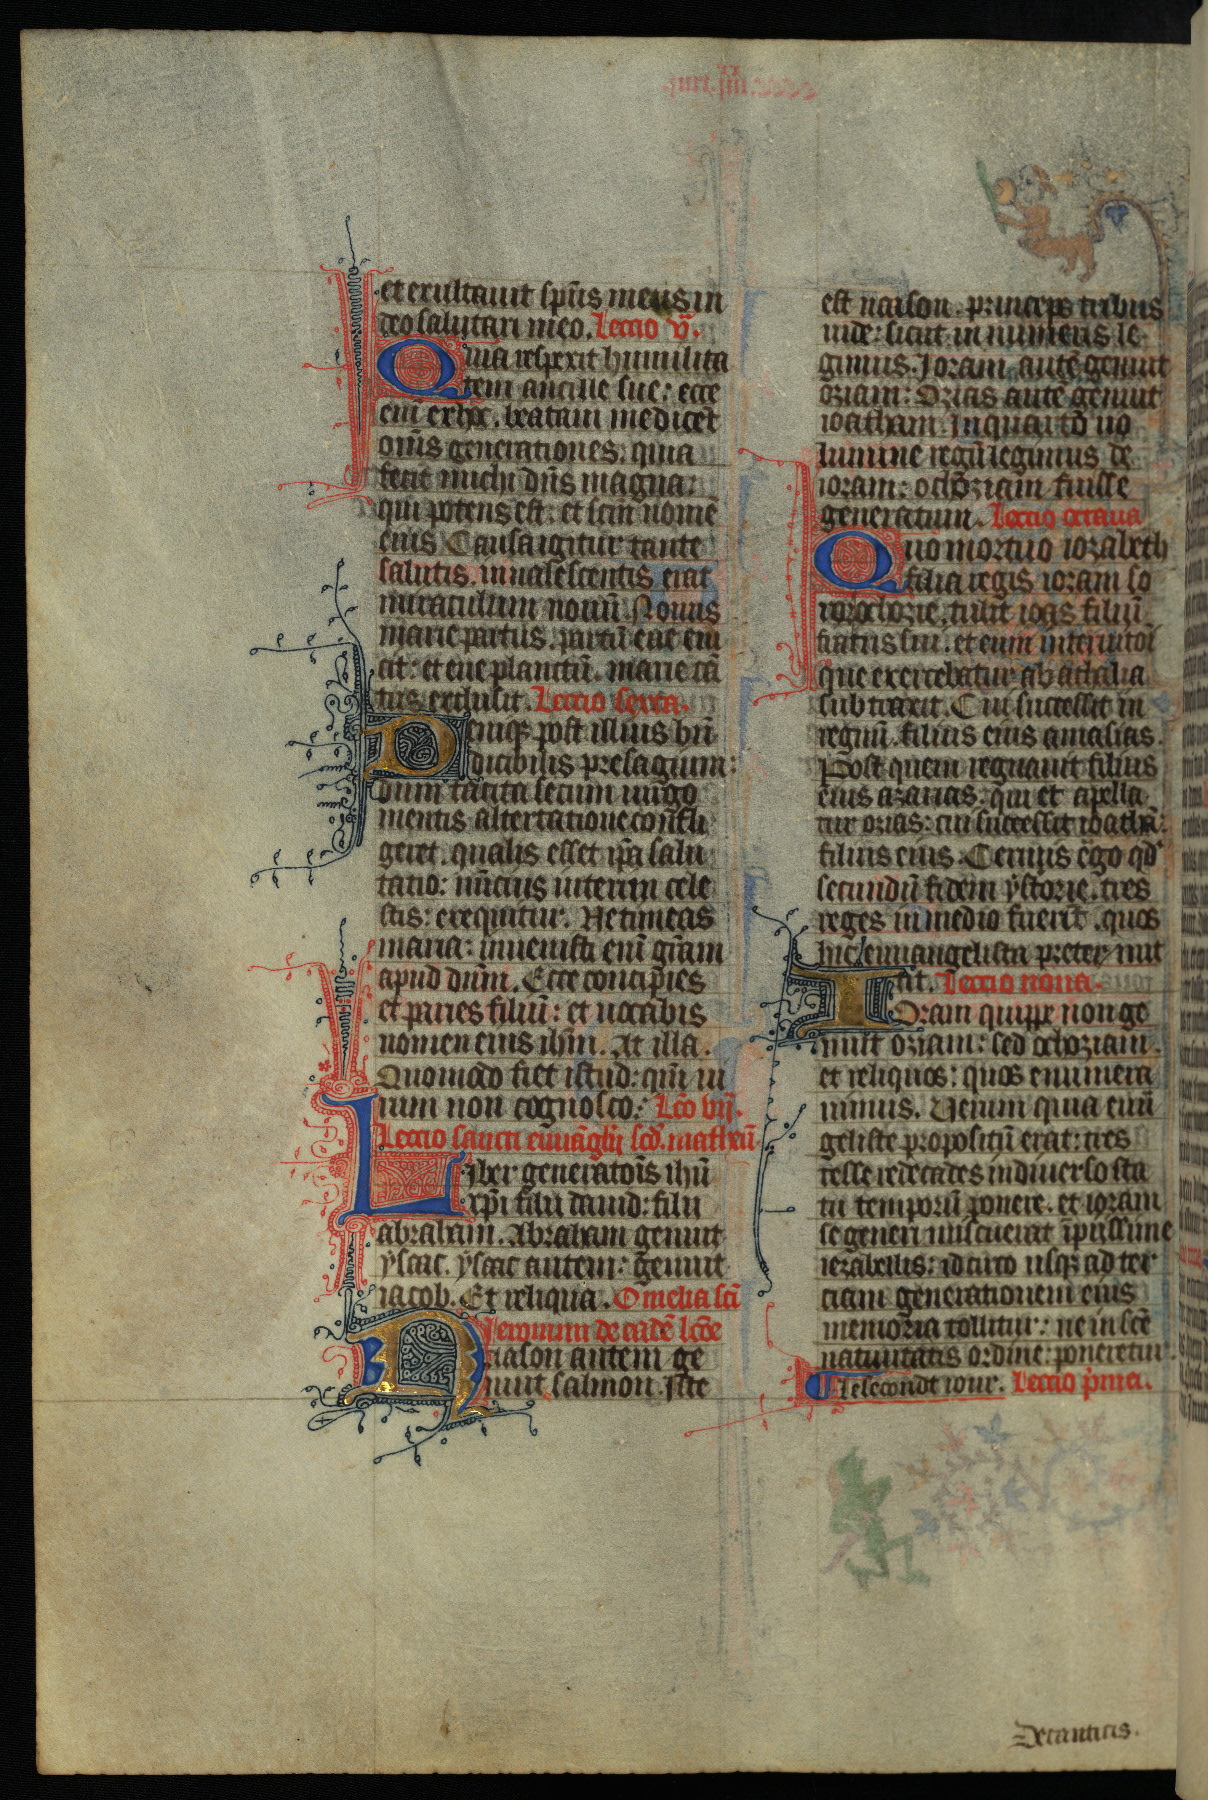 et exultauit sp̄us meus in
deo salutari meo. Lectio v̄.
Quia respexit humilita
tem ancille sue: ecce
eni᷒ ex hoc. beatam me dicēt
om̄s generationes: quia
fecit michi dn̄s magna:
qui potens est: et sc̄m nomē
eius Causa igitur tante
salutis. in uasescentis erat
miraculum nouū. Nouus
marie partus. partū eue eui
cit: et eue planctū. marie cā
tus exclusit. Lectio sexta.
Deniqꝫ post illius hui᷒
ducibilis presagium:
dum tacita secum uirgo
mentis altertatione confli
geret. qualis esset ip̄a salu
tatio: nūcius interim cele
stis: exequitur. Ne timeas
maria: inuenisti eni᷒ grām
apud dn̄m. Ecce concipies
et paries filiū: et uocabis
nomen eius ihm̄. At illa.
Quomodo fiet istud: qm̄ ui
rum non cognosco: Lc̄o vij̄.
Lectio sancti euuāglij sc̄d. matheū
Liber generatōis ihū
xp̄i filii dauid: filii
abraham. Abraham genuit
ysaac. ysaac autem: genuit
iacob. Et reliqua. Omelia sc̄i
Ieronimi de eadē lc̄oe
Naason autem ge
nuit salmon. Iste
est naason. princeps tribus
iude: sicut in numeris le
gimus. Ioram autē genuit
oziam: Ozias autē genuit
ioatham. In quarto uo
lumine regū legimus de
ioram: ochoziam fuisse
generatum. Lectio octaua
Quo mortuo iozabeth
filia regis ioram so
ror ochozie: tulit ioas filiū
fratris sui. et eum interitōi
que exercebatur ab athalia
subtraxit. Cui successit in
regnū. filius eius amasias.
Post quem regnauit filius
eius azarias: qui et apella
tur ozias: cui successit ioathā:
filius eius. Cernis ergo qd᷒
secundū fidem ystorie. tres
reges in medio fuerīt. quos
hic euuangelista preter mit
tit. Lectio nona.
Ioram quippe non ge
nuit oziam: sed ochoziam.
et reliquos: quos enumera
uimus. Uerum quia euū
geliste propositū erat: tres
tesseredecades in diuerso sta
tu temporū ponere. et ioram
se generi miscuerat īpiissime
iezabellis: idcirco usqꝫ ad ter
ciam generationem eius
memoria tollitur: ne in scē
natiuitatis ordine: poneretur
Le secondt iour. Lectio p̄ma.
De canticis.